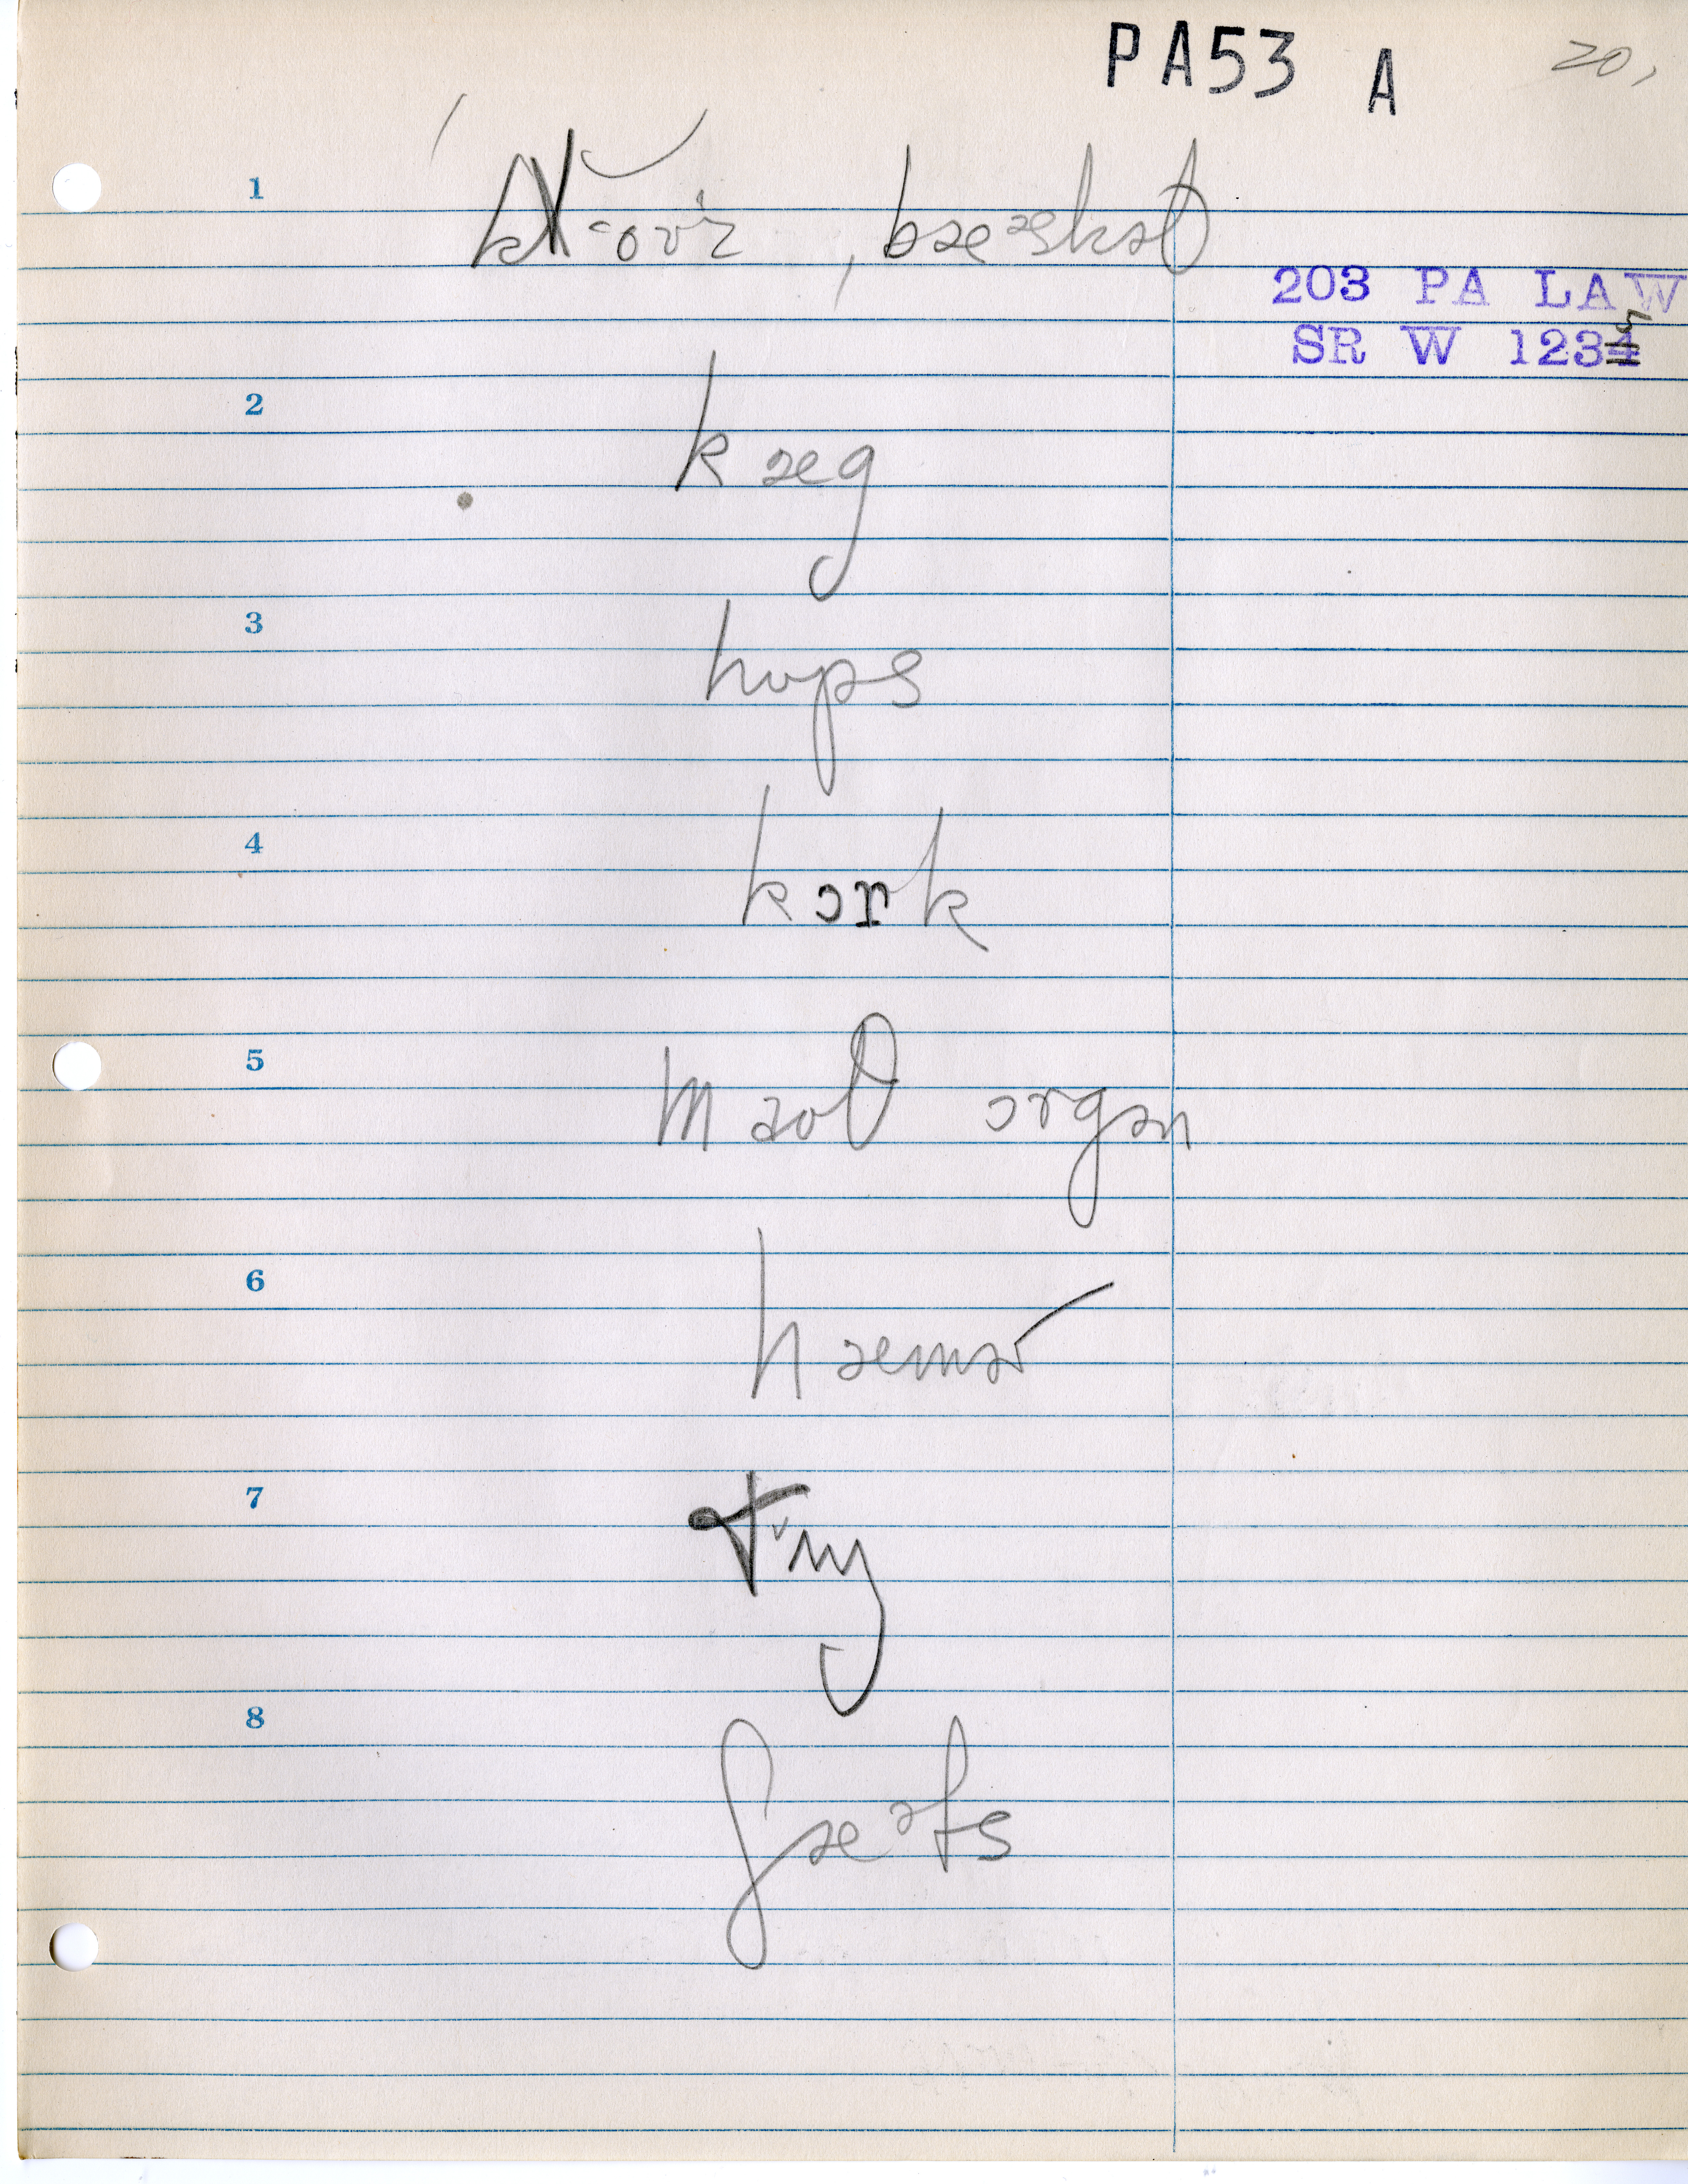 PA53 A 20,
1 , bæᵊskət
203 PA LAW
SR W 1235
2 kæg
3 hʊps
4 kɔrk
5 maʊθ ɔrgən
6 hæmɚ
7
8 ʃæᵊfs